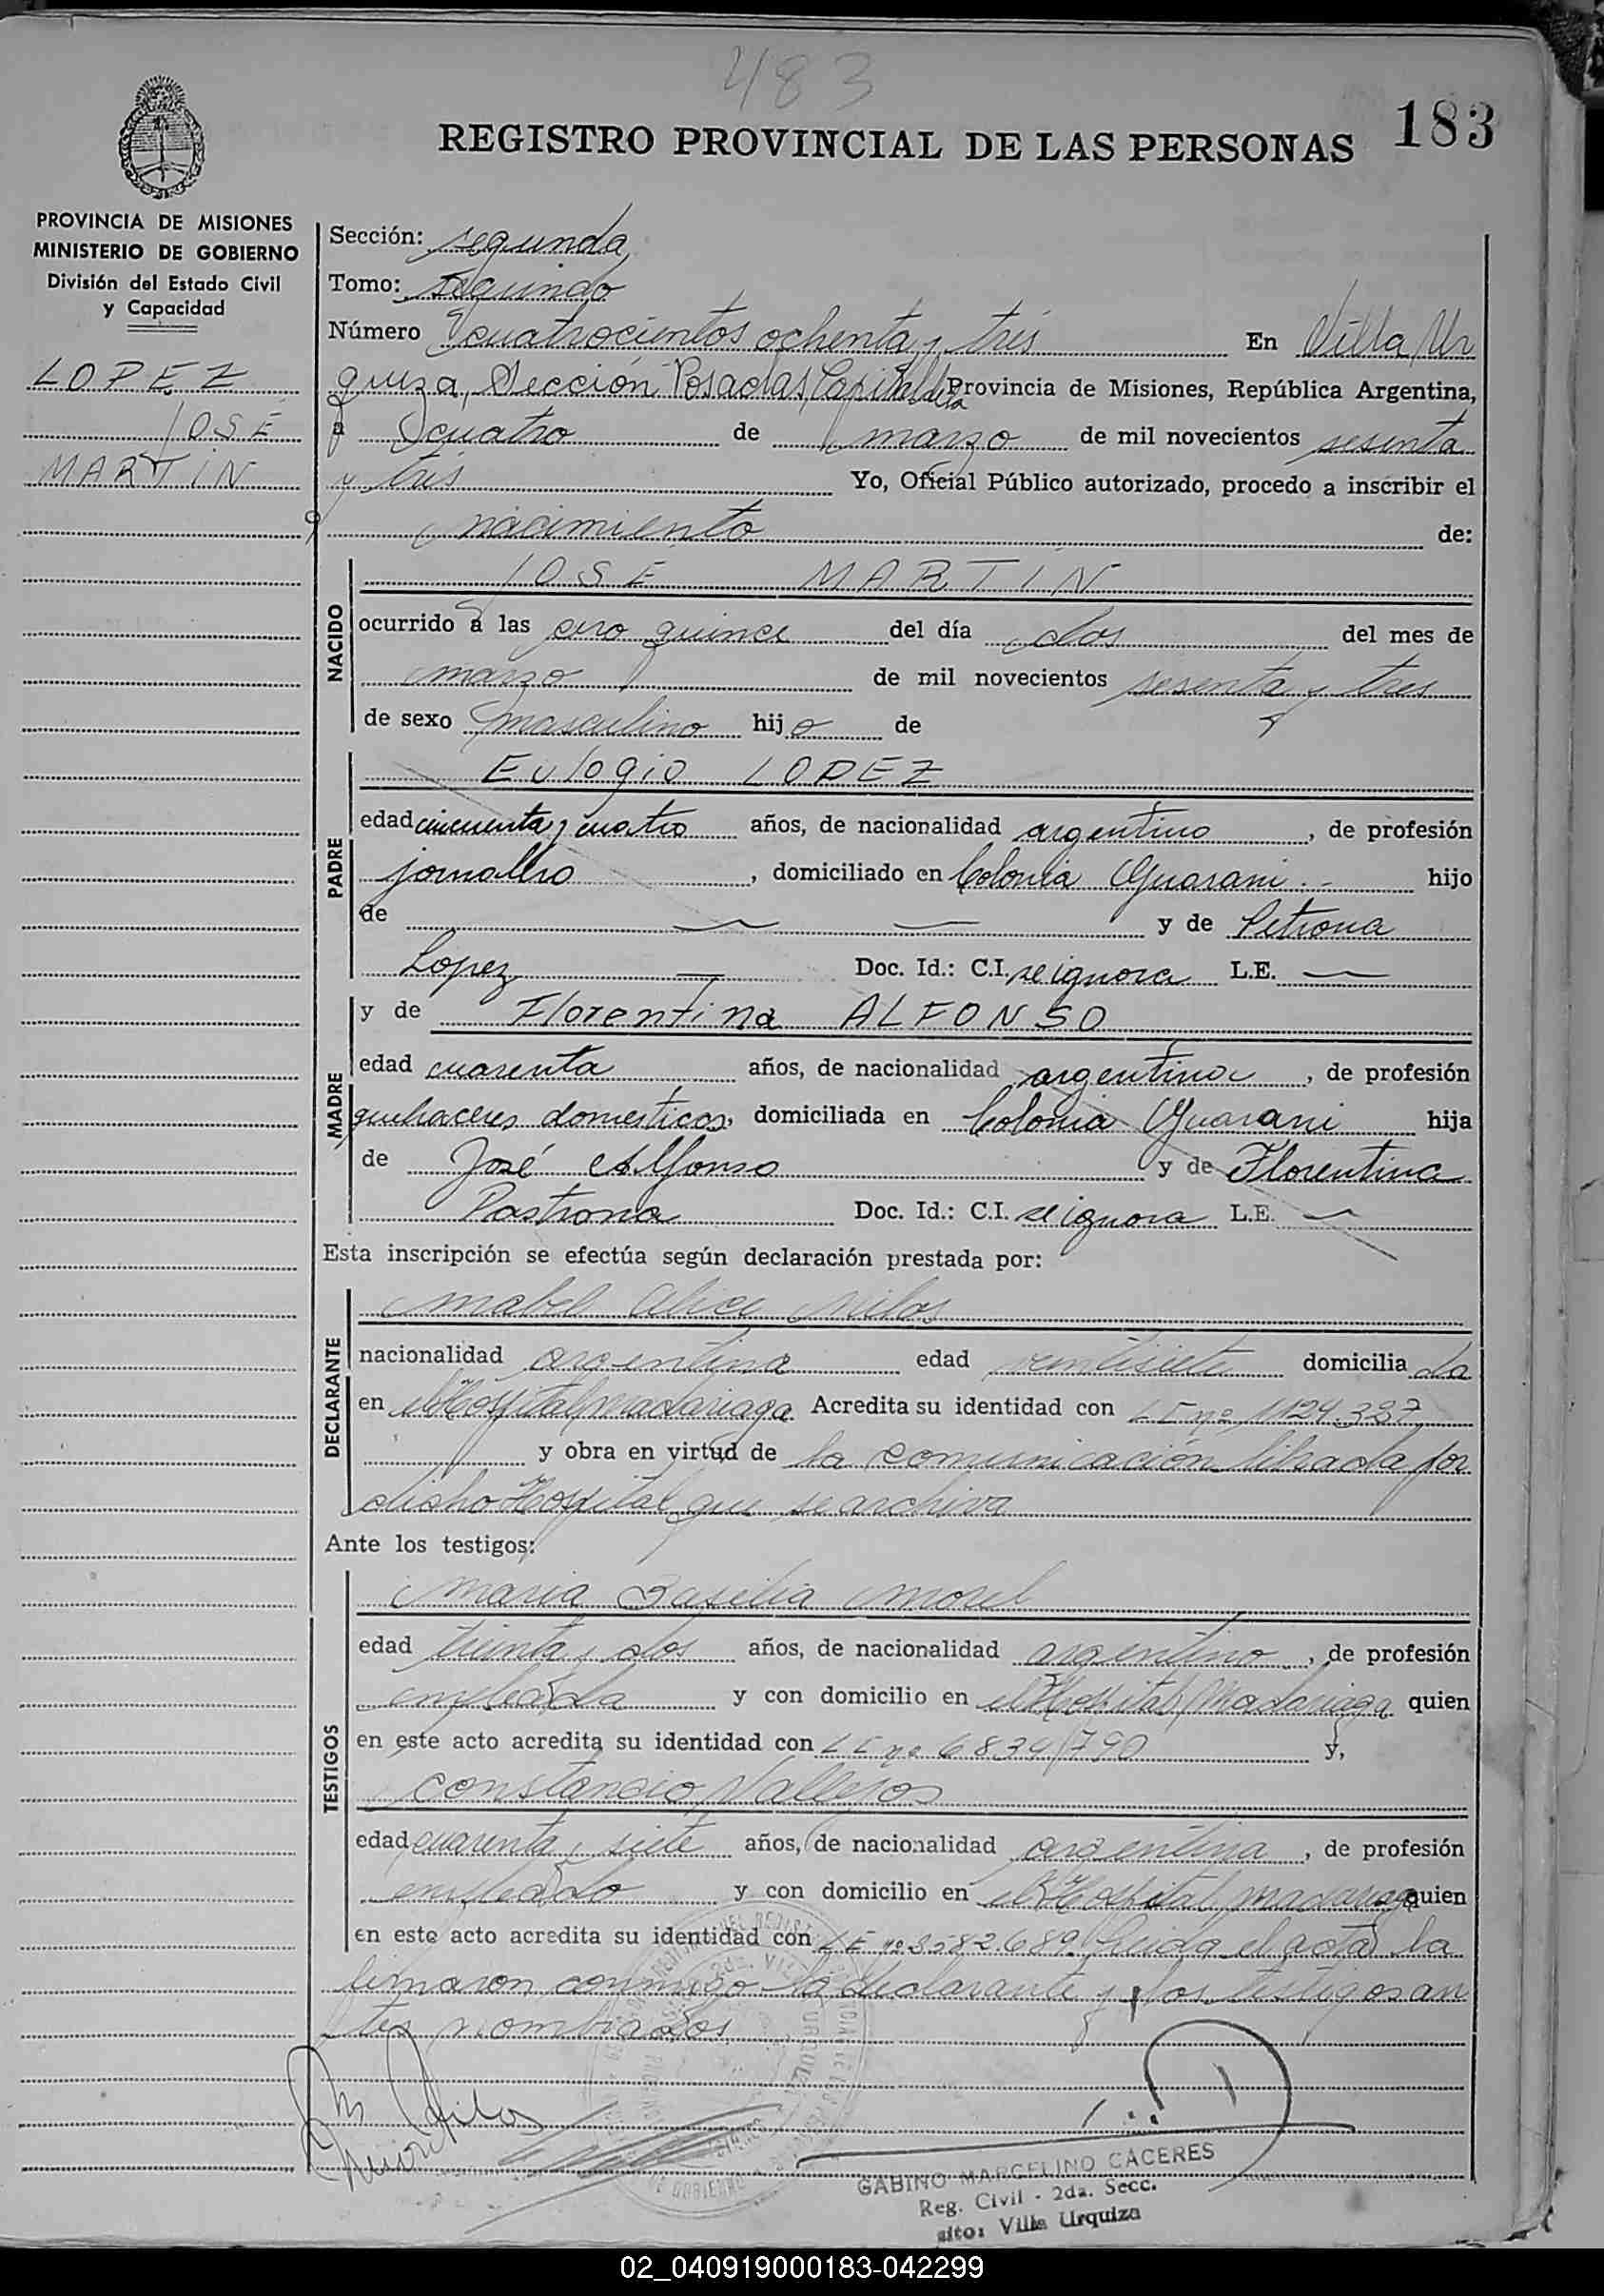 483
183
REGISTRO PROVINCIAL DE LAS PERSONAS
PROVINCIA DE MISIONES
MINISTERIO DE GOBIERNO
División del Estado Civil
y Capacidad
LOPEZ
JOSE
MARTIN
Sección: segunda
Tomo: segundo
Número cuatrocientos ochenta y tres En Villa Ur
quiza, Sección Posadas, Capital de la Provincia de Misiones, República Argentina,
a cuatro de marzo de mil novecientos sesenta
y tres Yo, Oficial Público autorizado, procedo a inscribir el
nacimiento de:
NACIDO
JOSE MARTIN
ocurrido a las cero quince del día dos del mes de
marzo de mil novecientos sesenta y tres
de sexo masculino hijo de
PADRE
Eulogio LOPEZ
edad cincuenta y cuatro años, de nacionalidad argentino, de profesión
jornalero, domiciliado en Colonia Guarani.- hijo
de y de Petrona
Lopez Doc. Id.: C.I. se ignora L.E.
MADRE
y de Florentina ALFONSO
edad cuarenta años, de nacionalidad argentina, de profesión
quehaceres domesticos, domiciliada en Colonia Guarani hija
de José Alfonso y de Florentina
Pastrona Doc. Id.: C.I. se ignora L.E.
Esta inscripción se efectúa según declaración prestada por:
DECLARANTE
Mabel Alice
nacionalidad argentina edad veintisiete domiciliada
en el Hospital Madariaga Acredita su identidad con nº 1124.327
y obra en virtud de la comunicación librada por
dicho Hospital que se archiva
Ante los testigos:
TESTIGOS
Maria Basilia Morel
edad treinta y dos años, de nacionalidad argentino, de profesión
empleada y con domicilio en el Hospital Madariaga quien
en este acto acredita su identidad con nº 6834790 y,
Constancio Vallejos
edad cuarenta y siete años, de nacionalidad argentina, de profesión
empleado y con domicilio en el Hospital Madariaga quien
en este acto acredita su identidad con LE nº 3582689. Leida el acta la
firmaron conmigo la declarante y los testigos an
tes nombrados
GABINO MARCELINO CACERES
Reg. Civil - 2da. Secc.
sito: Villa Urquiza
02_040919000183-042299